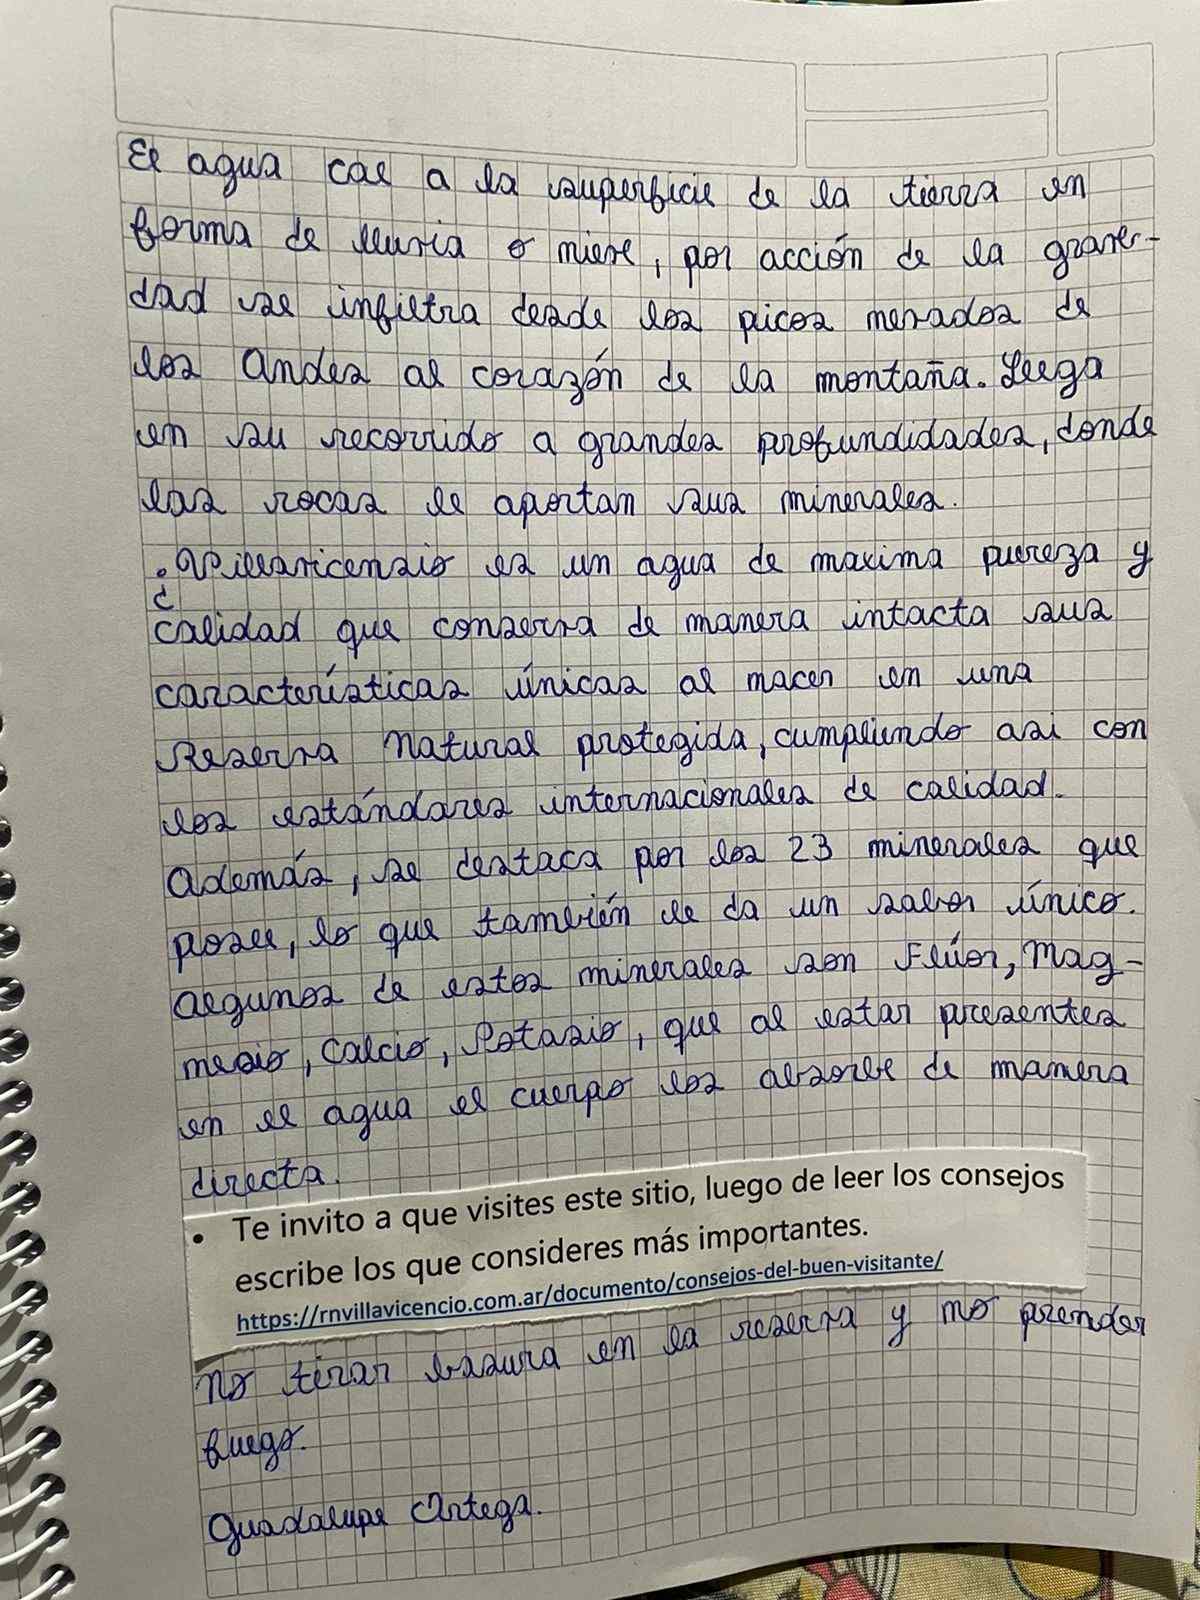 El agua cae a la superficie de la tierra en
forma de lluvia o nieve, por acción de la grave-
dad se infiltra desde los picos nevados de
los Andes al corazón de la montaña. Llega
en su recorrido a grandes profundidades, donde
las rocas le aportan sus minerales.
• Villavicensio es un agua de maxima pureza y
c
calidad que conserva de manera intacta sus
características únicas al nacer en una
Reserva Natural protegida, cumpliendo asi con
los estándares internacionales de calidad.
Además, se destaca por los 23 minerales que
posee, lo que también le da un sabor único.
Algunos de estos minerales son Flúor, Mag-
nesio, Calcio, Potasio, que al estar presentes
en el agua el cuerpo los absorbe de manera
directa.
• Te invito a que visites este sitio, luego de leer los consejos
escribe los que consideres más importantes.
https://rnvillavicencio.com.ar/documento/consejos-del-buen-visitante/
No tirar basura en la reserva y no prender
fuego.
Guadalupe Ortega.